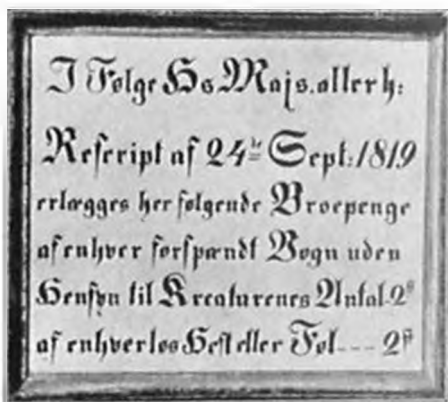 I Følge Hs Majs. allerh:
Rescript af 24de Sept: 1819
erlægges her følgende Broepenge
af enhver forspændt Vogn uden
Hensyn til Kreaturenes Antal-2ß
af enhver løs Hest eller Føl---- 2ß